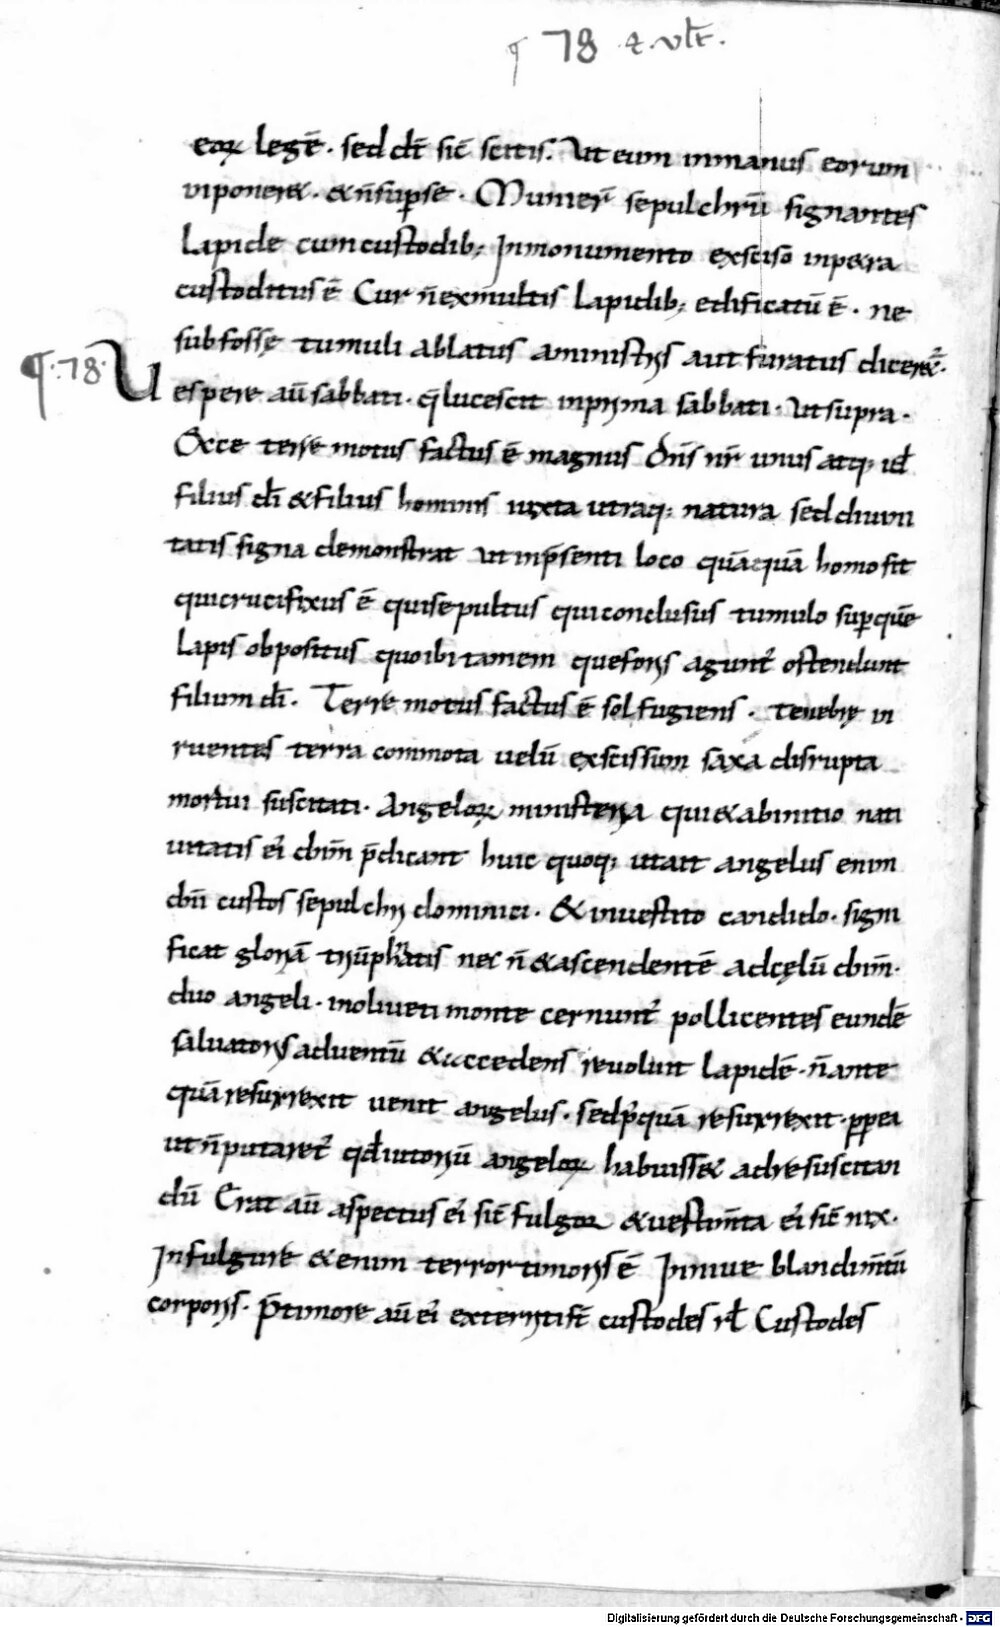 ¶ 78 & vlt̄.
eoꝝ legē. sed dt̄ sic̄ scitis. Ut eum inmanus eorum
viponeret. & n̄ sup̄ se. Munier̄ sepulchrū signantes
lapide cum custodib; Inmonumento exsciso inpetra
custoditus ē Cur n̄ ex multis lapidib; edificatū ē. ne
subfossę tumuli ablatus aministris aut furatus diceret̄.
¶.78. Uespere aū sabbati. q̄ lucescit inprima sabbati. Ut supra.
Ecce terre motus factus ē magnus Dn̄s nr̄ unus atq; id̄
filius dī & filius hominis iuxta utraq; natura sed diuini
tatis signa demonstrat ut inp̄senti loco quāquā homo sit
qui crucifixus ē qui sepultus qui conclusus tumulo sup̄ quē
lapis obpositus quo ibi tamem que foris agunt̄ ostendunt
filium dī. Terre motus factus ē sol fugiens. tenebrę in
ruentes terra commota uelū exscissum saxa disrupta
mortui suscitati. Angeloꝝ ministeria qui & abinitio nati
uitatis eī dnm̄ p̄dicant huic quoq; utait angelus enim
dnī custos sepulchri dominici. & inuestito candido. signi
ficat gloriā triūphantis nec n̄ & ascendentē adcęlū dnm̄.
duo angeli. inoliueti monte cernunt̄ pollicentes eundē
saluatoris aduentū & accedens reuoluit lapidē. n̄ ante
quā resurrexit uenit angelus. sed p̄quā resurrexit. pp̄ea
ut n̄ putaret̄ qd̄ iutoriū angeloꝝ habuisset adresuscitan
dū Erat aū aspectus eī sic̄ fulgor & uestim̄ta eī sic̄ nix.
In fulgure & enim terror timoris ē In niue blandim̄tū
corporis. P̄ timore aū eī exterriti st̄ custodes rl̄ Custodes
Digitalisierung gefördert durch die Deutsche Forschungsgemeinschaft - DFG